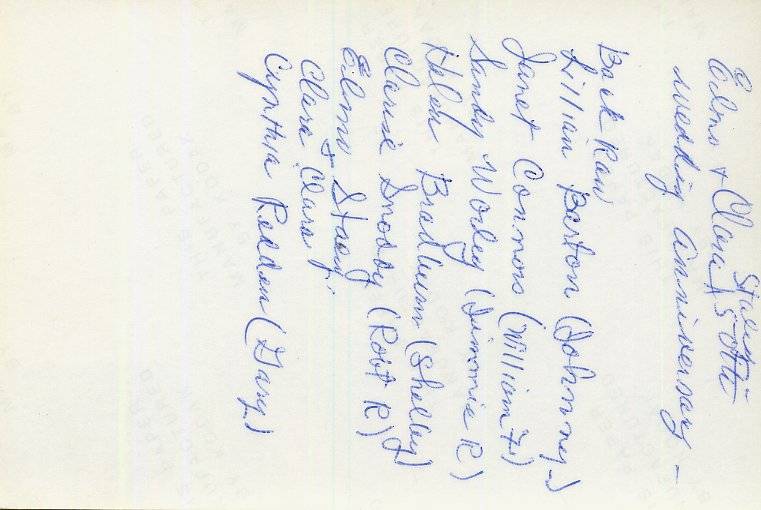 Elmo & Clara Stacy's 50th
Wedding Anniversary –
Back Row
Lillian Barton (Johnny)
Janet Connors (William F)
Sandy Wodey (Jimmie R)
Helen Bradburn (Shelby)
Clarise Snoddy (Robt R) J
Elmo Stacy
& Clara
Clara
Cynthia Redden (Gary)